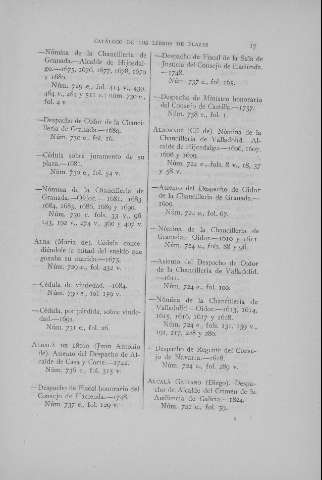 CATÁLOGO DE LOS LIBROS DE PLAZAS
17
—Nómina de la Chancillería de
Granada.—Alcalde de Hijosdal-
go.—1675, 1676, 1677, 1678, 1679
y 1680.
Núm. 729 e., fol. 414 v., 430,
464 v., 461 y 512 v.; núm. 730 e.,
fol. 4 v.
—Despacho de Oidor de la Chanci-
llería de Granada.—1680.
Núm. 730 e., fol. 16.
—Cédula sobre juramento de su
plaza.—1681.
Núm. 730 e., fol. 54 v.
—Nómina de la Chancillería de
Granada.—Oidor.—1681, 1683,
1684, 1685, 1686, 1689 y 1690.
Núm. 730 e., fols. 33 v., 96
143, 192 v., 274 v., 360 y 407 v.
Alba (María de). Cédula conce-
diéndole la mitad del sueldo que
gozaba su marido.—1675.
Núm. 729 e., fol. 432 v.
—Cédula de viudedad.—1684.
Núm. 730 e., fol. 159 v.
—Cédula, por pérdida, sobre viude-
dad.—1691.
Núm. 731 e., fol. 26.
de). Asiento del Despacho de Al-
calde de Casa y Corte.—1744.
Núm. 736 e., fol. 315 v.
—Despacho de Fiscal honorario del
Consejo de Hacienda.—1748.
Núm. 737 e., fol. 129 v.
—Despacho de Fiscal de la Sala de
Justicia del Consejo de Hacienda.
—1748.
Núm. 737 e., fol. 165.
—Despacho de Ministro honorario
del Consejo de Castilla.—1757.
Núm. 738 e., fol. 1.
de). Nómina de la
Chancillería de Valladolid. Al-
calde de Hijosdalgo.—1606, 1607,
1608 y 1609.
Núm. 724 e., fols. 8 v., 18, 37
y 58 v.
—Asiento del Despacho de Oidor
de la Chancillería de Granada.—
1609.
Núm. 724 e., fol. 67.
—Nómina de la Chancillería de
Granada.—Oidor.—1610 y 1611.
Núm. 724 e., fols. 88 y 96.
—Asiento del Despacho de Oidor
de la Chancillería de Valladolid.
—1611.
Núm. 724 e., fol. 100.
—Nómina de la Chancillería de
Valladolid.—Oidor.—1613, 1614,
1615, 1616, 1617 y 1618.
Núm. 724 e., fols. 131, 139 v.,
191, 217, 228 y 280.
—Despacho de Regente del Conse-
jo de Navarra.—1618.
Núm. 724 e., fol. 289 v.
Alcalá Galiano (Diego). Despa-
cho de Alcalde del Crimen de la
Audiencia de Galicia.—1824.
Núm. 742 e., fol. 39.